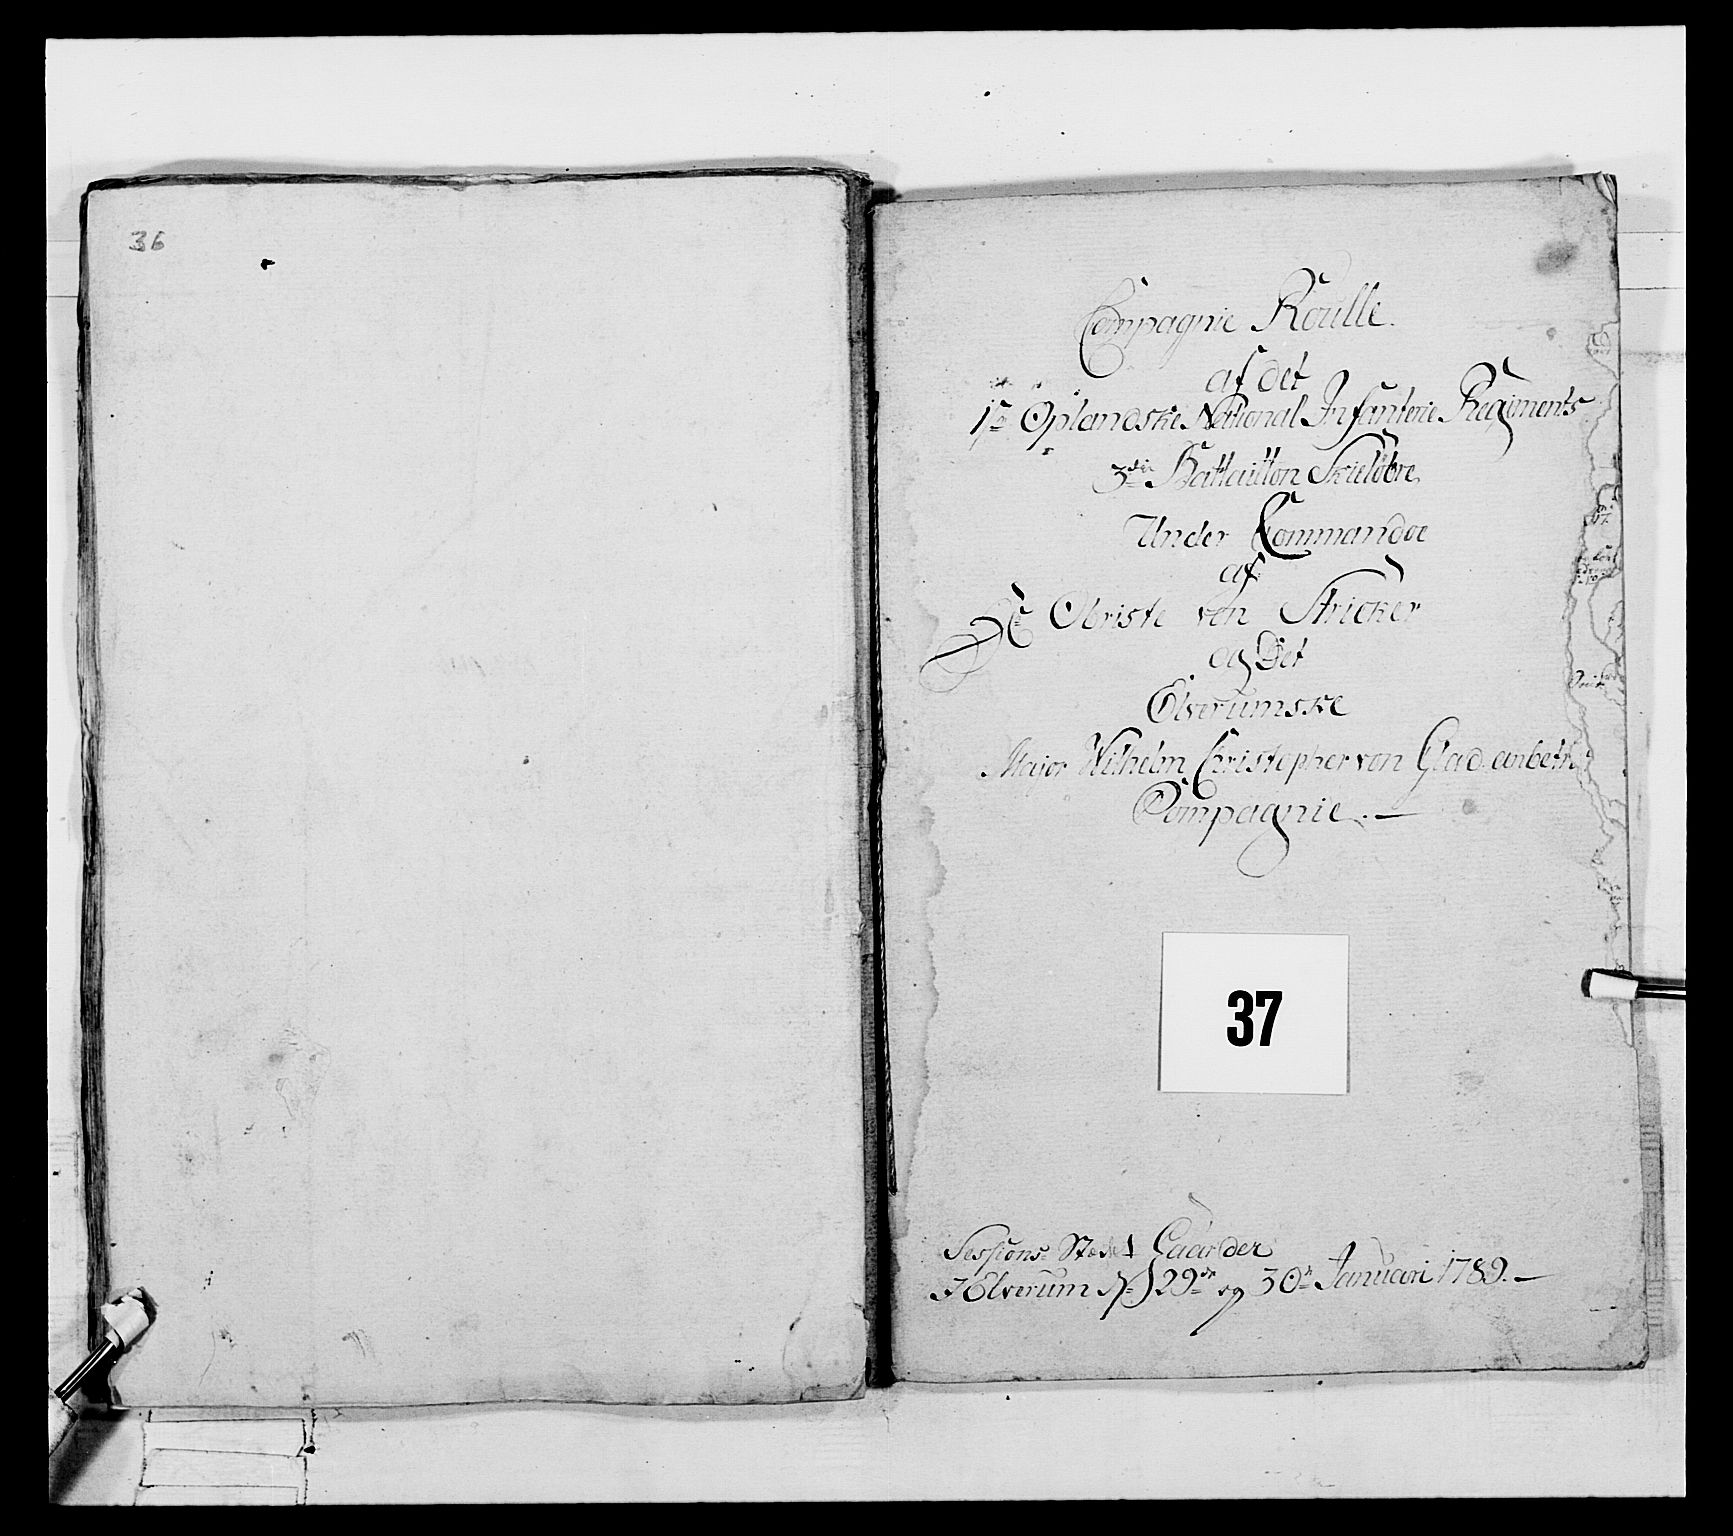 36
Compagnie Roulle.
af det
1ste Oplandske National Infanterie Regiments
3die Battaillon Skielöbre
Under Commandoe
af
Hr Obriste von Stricker
og Det
Elverumske
Major Wilhelm Christopher von Glad anbetr
Compagnie. —
37
Sessions Stædet Gaarder
I Elverum d: 29de og 30te Januari 1789. —